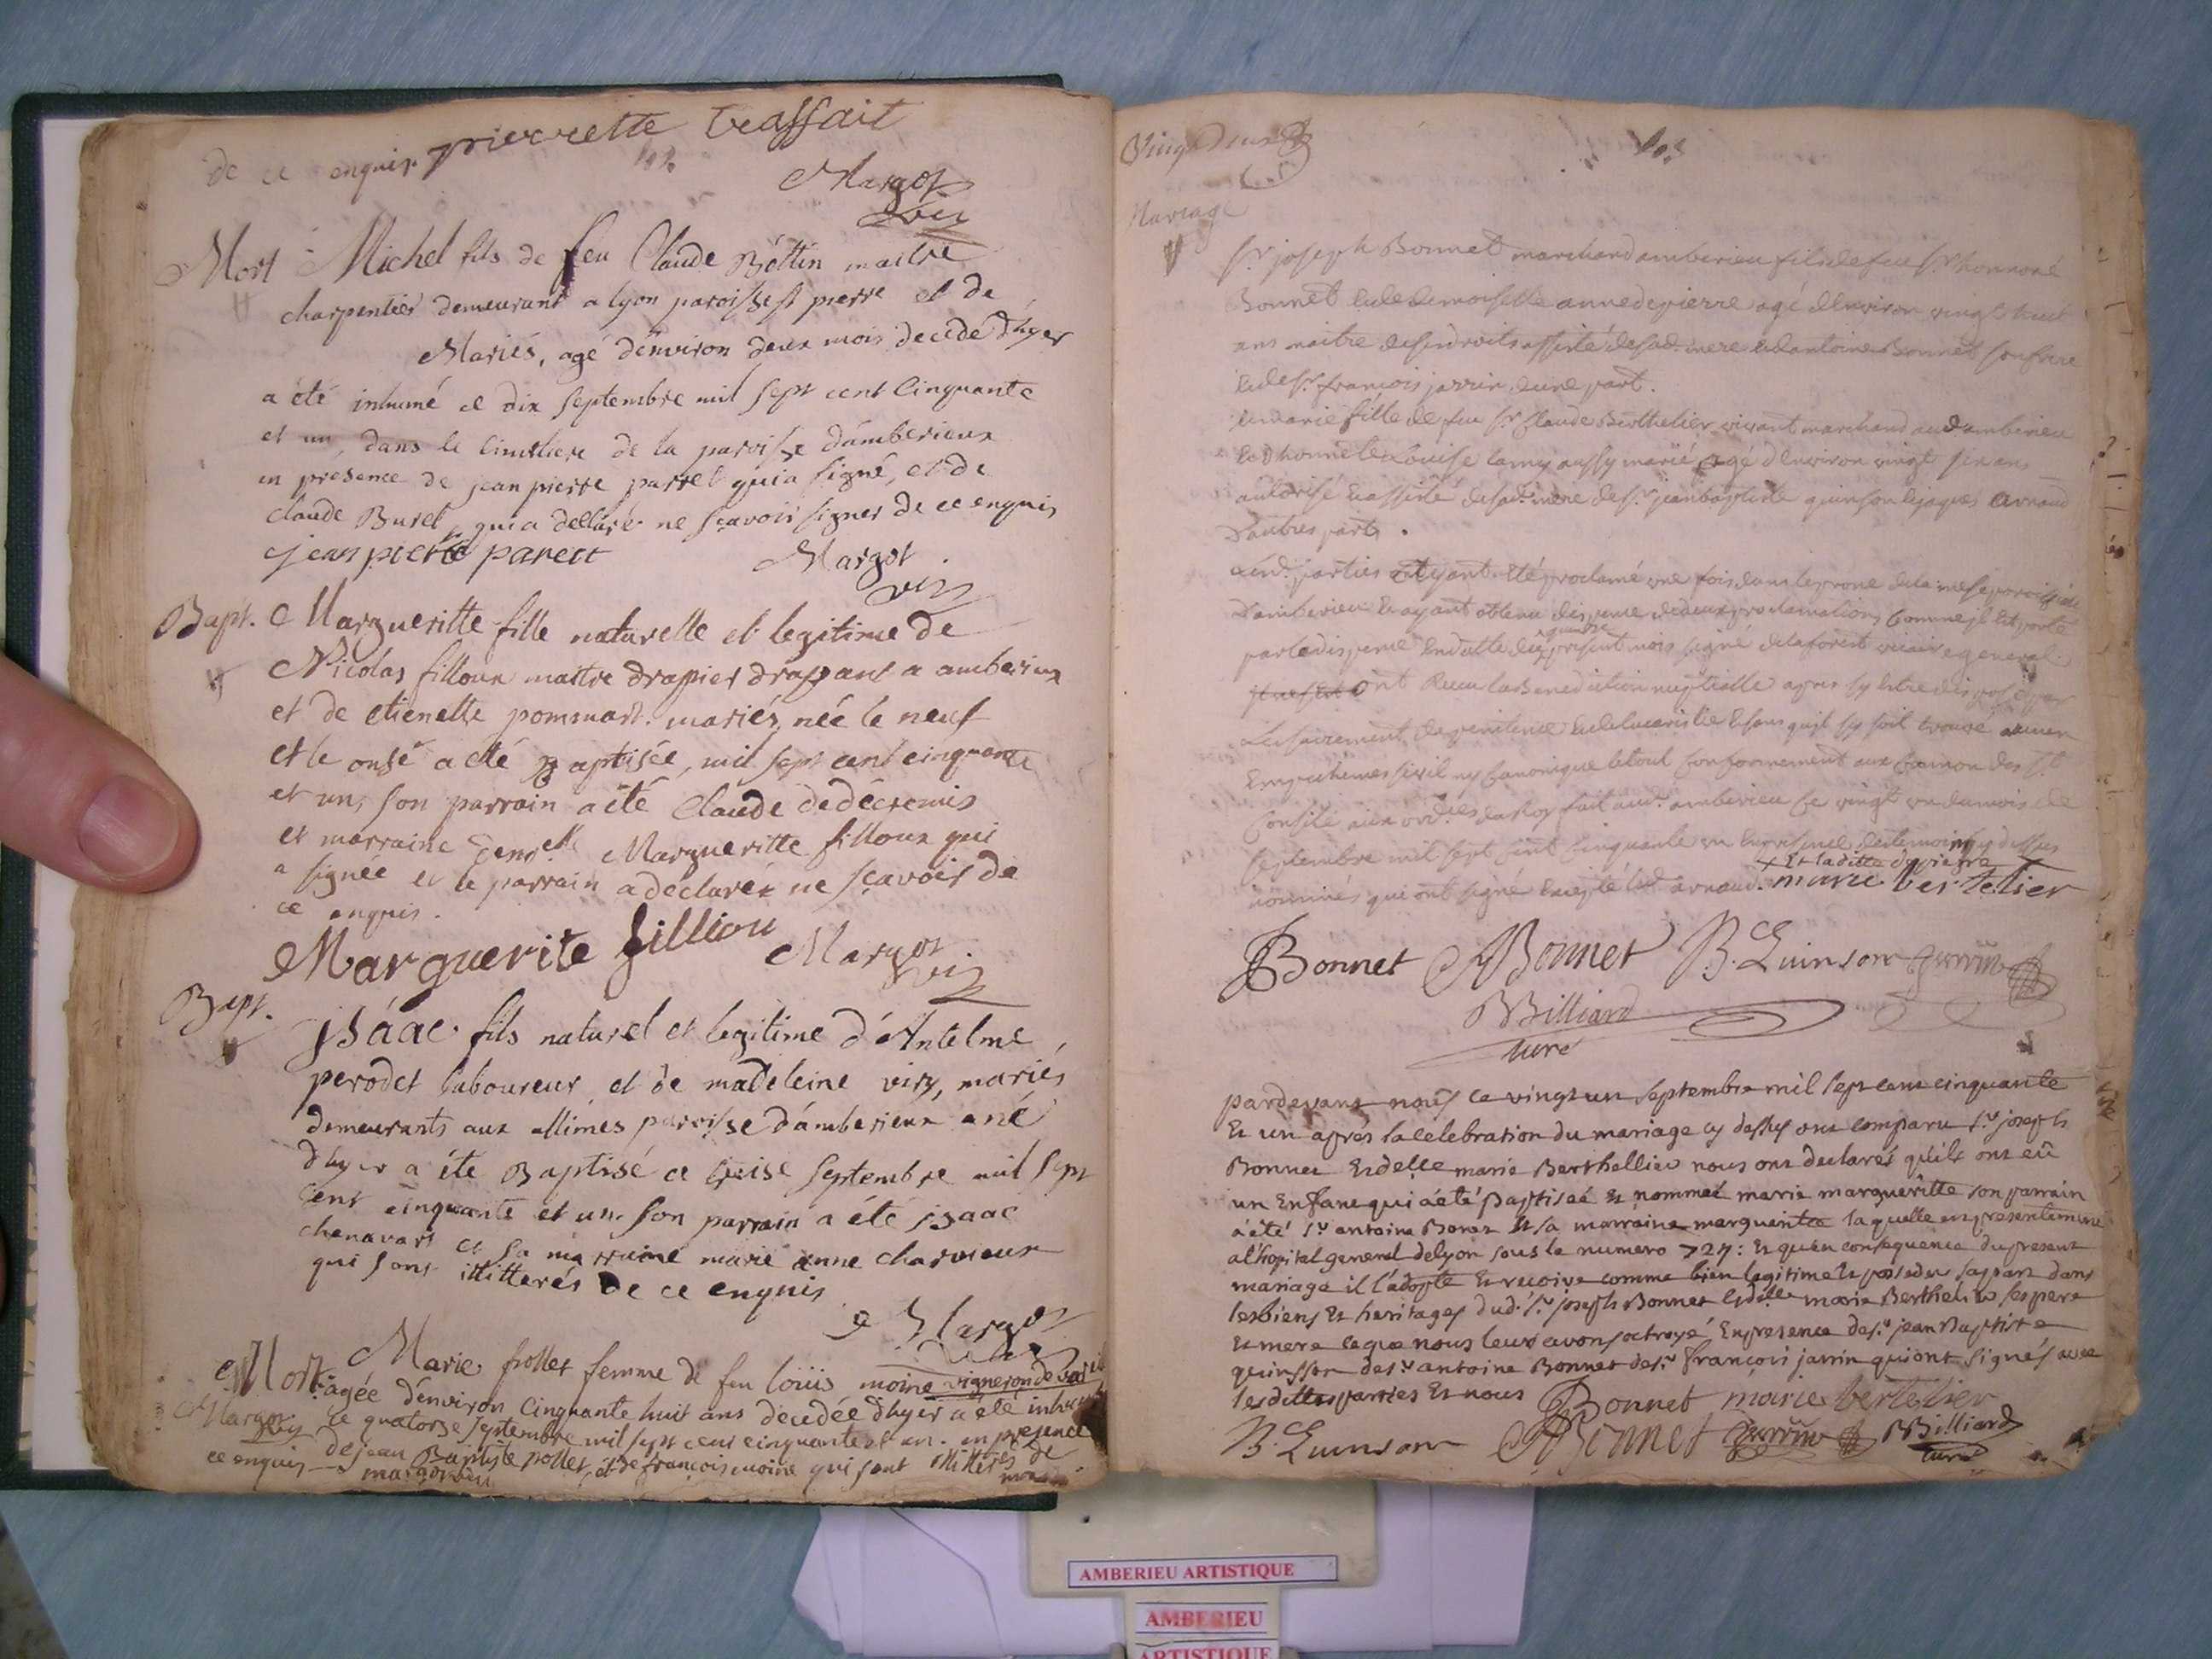 de ce enquis pierrette traffait
Margot
vic
Mort Michel fils de feu Claude Bottin maitre
charpentier demeurant a lyon paroisse st pierre et de
Mariés, agé d'environ deux mois decedé d'hyer
a été inhumé ce dix septembre mil sept cent cinquante
et un, dans le cimetiere de la paroisse d'amberieux
en presence de jean pierre parret qui a signé, et de
claude Buret, qui a declaré ne sçavoir signer de ce enquis
jean pierre parett Margot
vic
Bapt. Margueritte fille naturelle et legitime de
Nicolas filloux maitre drapier drapant a amberieux
et de etienette pommart mariés, née le neuf
et le onse a été Baptisée, mil sept cent cinquante
et un, son parrain a été Claude dedécremis
et marraine dem.elle Margueritte filloux qui
a signée et le parrain a déclarér ne sçavoir de
ce enquis.
Marguerite filliou Margot
vic
Bapt. jsáac fils naturel et legitime d'Antelme
perodet laboureur et de madeleine viry, mariés
demeurants aux allimes paroisse d'amberieux a né
d'hyer a été Baptisé ce treise septembre mil sept
cent cinquante et un. son parrain a été jsaac
chenavart et sa marraine marie anne charvieux
qui sont illitterés de ce enquis
Margot
Mort Marie pollet femme de feu loüis moine vigneron de
agée d'environ cinquante huit ans decedée d'hyer a été inhumée
Margot vic ce quatorse septembre mil sept cent cinquante et un. en presence
de jean Baptiste pollet, et de françois moine qui sont illiterés de
ce enquis
Vingt deux
103
Mariage
Sr joseph Bonnet marchand amberieu fils de feu Sr honnoré
Bonnet et de demoiselle anne depierre agé d'environ vingt huit
ans maitre de ses droits assisté de sad. mere et d'antoine Bonnet son frere
et de Sr françois jarrin d'une part.
et marie fille de feu Sr Claude Berthelier vivant marchand aud amberieu
et d'honnete Louise lamy aussy marié agé d'environ vingt six ans
autorisé et assisté de sad. mere de Sr jean baptiste quinson et jaques arnaud
d'autres part.
Lesd. parties ayant été proclamé une fois dans le prone de la messe paroissiale
d'amberieu et ayant obtenu dispense de deux proclamations comme il est porté
par la dispense en datte du quinze present mois signé delaforest vicaire general
ont Recu la Benediction nuptialle apres sy etre disposé par
Les sacrement de penitence et de leucaristie et sans quil sy soit trouvé aucun
Empechemens sivil ny canonique le tout conformement aux Cannon des St
Consile aux ordres du Roy fait aud. amberieu ce vingt un du mois de
septembre mil sept cent cinquante un en presence des temoins cy dessus
nommés qui ont signé excepté led arnaud. + Et laditte depierre +
marie bertelier
Bonnet ABonnet B. Quinson jarrin
BBilliard
curé
pardevant nous ce vingt un septembre mil sept cens cinquante
Et un après la célébration du mariage cy dessus ont comparu Sr joseph
Bonnet Et delle marie Berthellier nous ont declarés qu'ils ont eû
un Enfant qui a été Baptiseé Et nommeé marie marguerîtte son parrain
a été Sr antoine Et sa marraine marguerite laquelle est presentement
al'hopital general de lyon sous le numero 727: Et qu'en consequence du present
mariage il l'adopte Et reçoive comme bien legitime Et posseder sa part dans
les biens Et heritages dud. Sr joseph Bonnet Et delle marie Berthelier ses pere
Et mere ce que nous leurs avons octroyé En presence de Sr jean Baptiste
quinsson de Sr antoine Bonnet de Sr françois jarrin qui ont signés avec
lesdittes parties Et nous Bonnet marie bertelier
B. Quinson ABonnet jarrin BBilliard
curé
AMBERIEU ARTISTIQUE
AMBERIEU
ARTISTIQUE